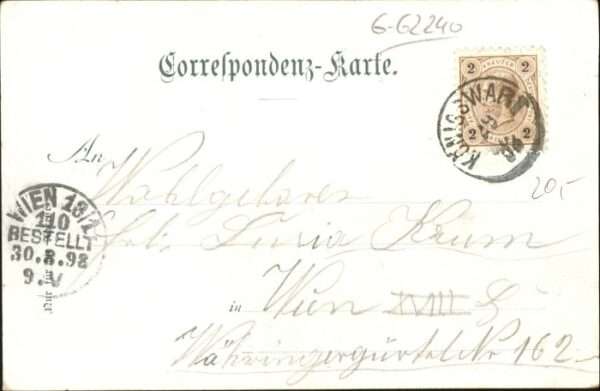 6-62240
Correspondenz-Karte.
2 KREUZER 2
2 2
KÖNIGSWART
An
Wohlgeboren
Frl. Luzia Krum
in Wien XVIII
Währingergürtel Nr 162
20,-
WIEN 18/1
110
BESTELLT
30.8.98
9.V